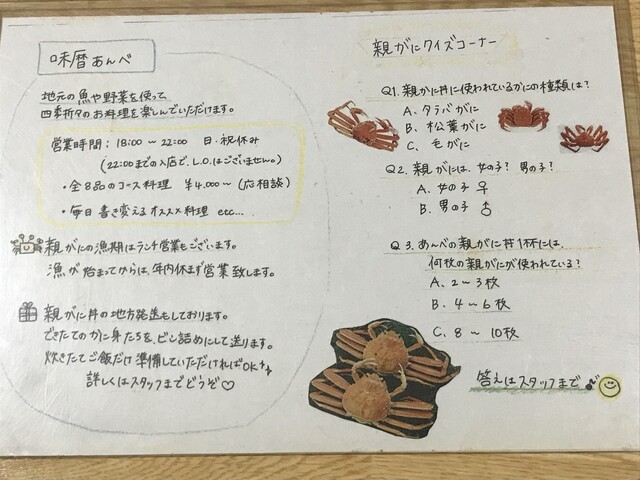 味暦あんべ
地元の魚や野菜を使って
四季折々のお料理を楽しんでいただけます。
営業時間：18:00〜22:00　日・祝休み
(22:00までの入店で、L.O.はございません。)
・全8品のコース料理　¥4,000〜（応相談）
・毎日書き変えるオススメ料理 etc...
親がにの漁期はランチ営業もございます。
漁が始まってからは、年内休まず営業致します。
親がに丼の地方発送もしております。
できたてのかに身たちを、ビン詰めにして送ります。
炊きたてご飯だけ準備していただければOK
詳しくはスタッフまでどうぞ♡
親がにクイズコーナー
Q1. 親がに丼に使われているがにの種類は？
A. タラバがに
B. 松葉がに
C. 毛がに
Q2. 親がには、女の子？ 男の子？
A. 女の子 ♀
B. 男の子 ♂
Q3. あんべの親がに丼1杯には、
何枚の親がにが使われている？
A. 2〜3枚
B. 4〜6枚
C. 8〜10枚
答えはスタッフまで